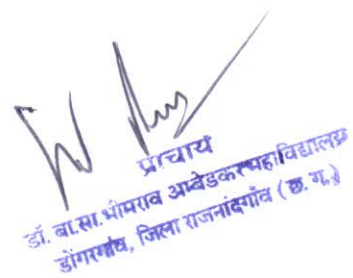 प्राचार्य
डॉ. बा.सा. भीमराव अम्बेडकर महाविद्यालय
डोंगरगांव, जिला राजनांदगाँव ( छ. ग.)